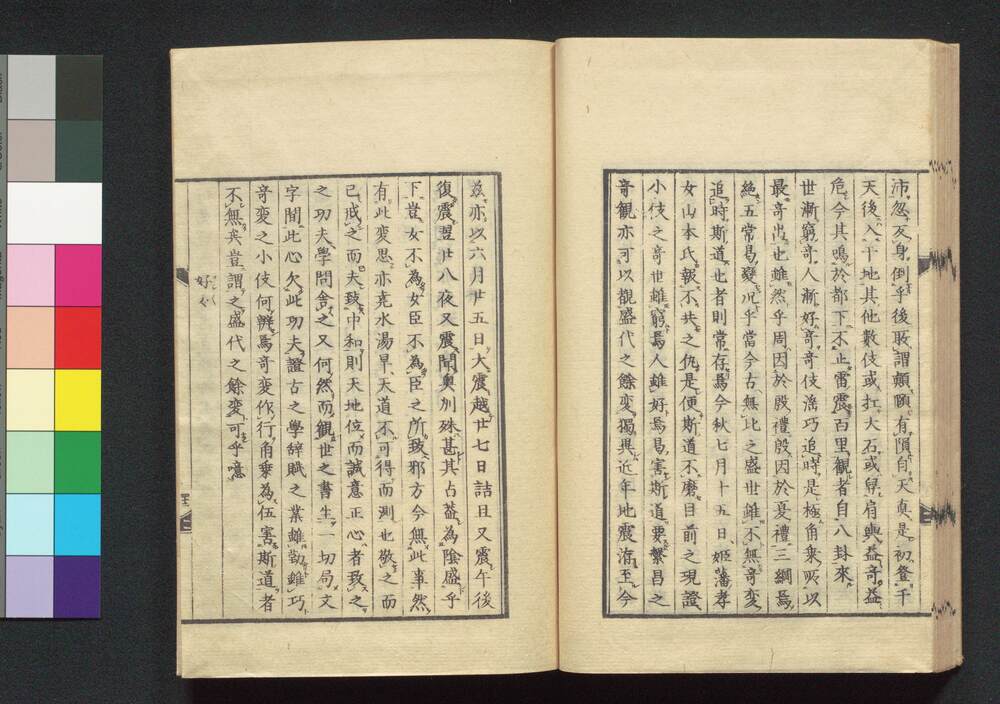 沛忽反身倒乎後敢謂顛隕有隕自天真是初發千
天後入于地其他數伎或扛大石或舁肩輿益奇益
危今其鳴於都下不止雷震百里觀者自八方來
世漸窮奇人漸好奇奇伎淫巧追時是極角乘所以
最奇出也雖然乎周因於殷禮殷因於夏禮三綱焉
絶五常易變况乎當今古無比之盛世雖不無奇変
追時斯道也者則常存焉今秋七月十五日姬藩孝
女山本氏報不共之仇是便斯道不磨目前之現證
小伎之奇世雖窮焉人雖好焉易害斯道要繫昌之
奇観亦可以觀盛代之餘変獨異近年地震洊至今
玆亦以六月廿五日大震越廿七日詰旦又震午後
復震翌廿八夜又震聞奥州殊甚其占葢為陰盛乎
下豈女不為女臣不為臣之所致邪方今無此事然
有此変思亦尭水湯旱天道不可得而測也敬之而
已戒之而夫致中和則天地位而誠意正心者致之
之功夫學問舍之又何然而觀世之書生一切局文
字間此心欠此功夫證古之學辞賦之業雖勤雖巧
奇変之小伎何辨焉奇変作行角乗為伍害斯道者
不無矣豈謂之盛代之餘変可乎噫